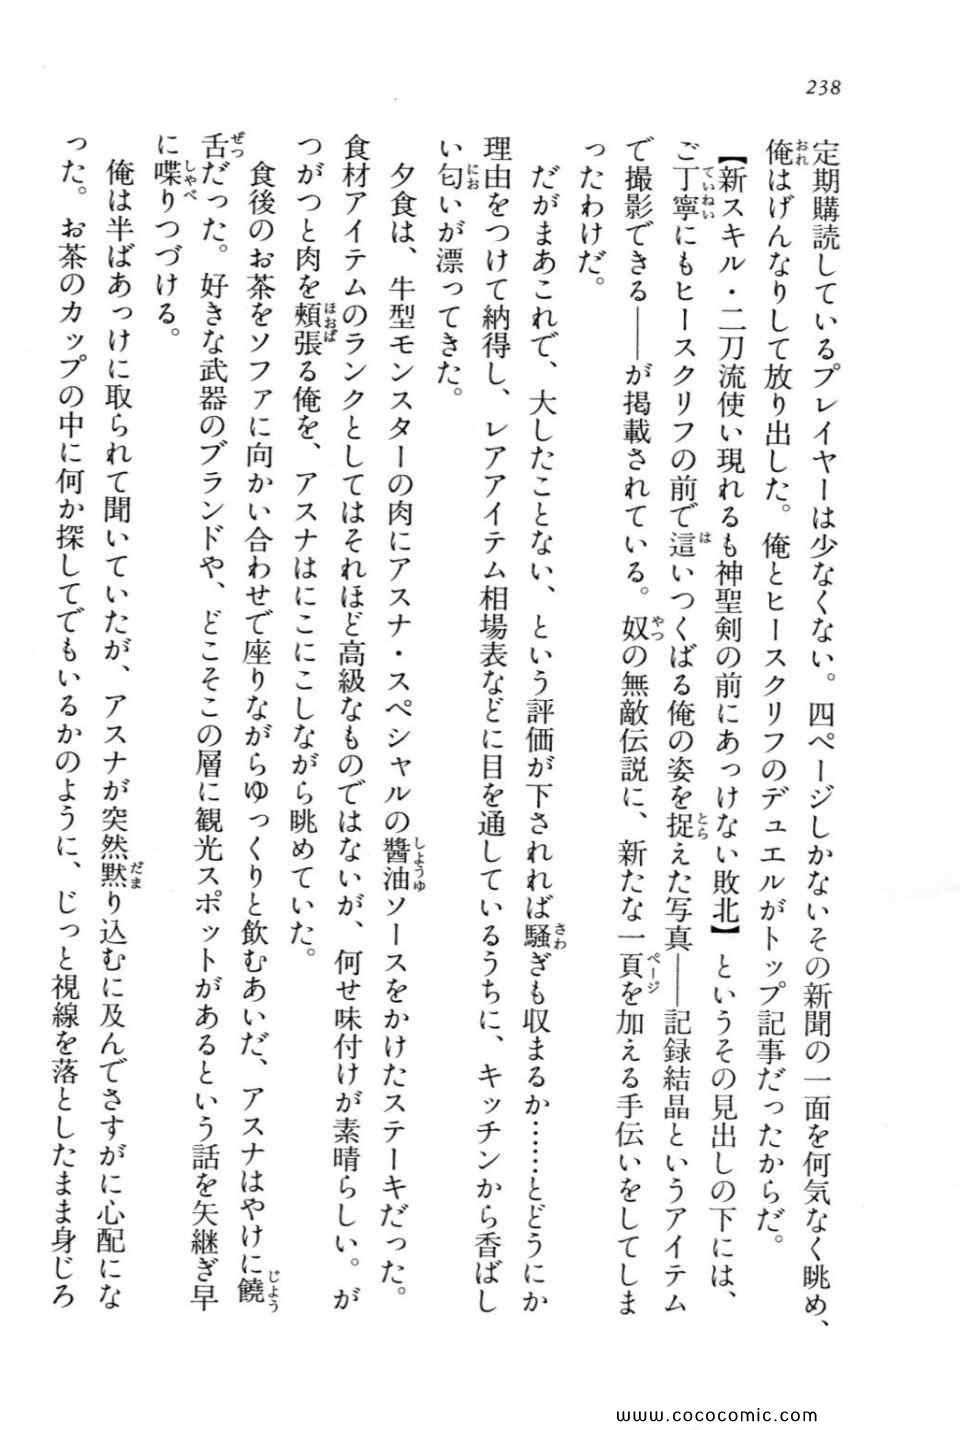 238
定期購読しているプレイヤーは少なくない。四ページしかないその新聞の一面を何気なく眺め、
俺はげんなりして放り出した。俺とヒースクリフのデュエルがトップ記事だったからだ。
【新スキル・二刀流使い現れるも神聖剣の前にあっけない敗北】というその見出しの下には、
ご丁寧にもヒースクリフの前で這いつくばる俺の姿を捉えた写真――記録結晶というアイテム
で撮影できる――が掲載されている。奴の無敵伝説に、新たな一頁を加える手伝いをしてしま
ったわけだ。
だがまあこれで、大したことない、という評価が下されれば騒ぎも収まるか……とどうにか
理由をつけて納得し、レアアイテム相場表などに目を通しているうちに、キッチンから香ばし
い匂いが漂ってきた。
夕食は、牛型モンスターの肉にアスナ・スペシャルの醬油ソースをかけたステーキだった。
食材アイテムのランクとしてはそれほど高級なものではないが、何せ味付けが素晴らしい。が
つがつと肉を頰張る俺を、アスナはにこにこしながら眺めていた。
食後のお茶をソファに向かい合わせで座りながらゆっくりと飲むあいだ、アスナはやけに饒
舌だった。好きな武器のブランドや、どこそこの層に観光スポットがあるという話を矢継ぎ早
に喋りつづける。
俺は半ばあっけに取られて聞いていたが、アスナが突然黙り込むに及んでさすがに心配にな
った。お茶のカップの中に何か探してでもいるかのように、じっと視線を落としたまま身じろ
www.cococomic.com